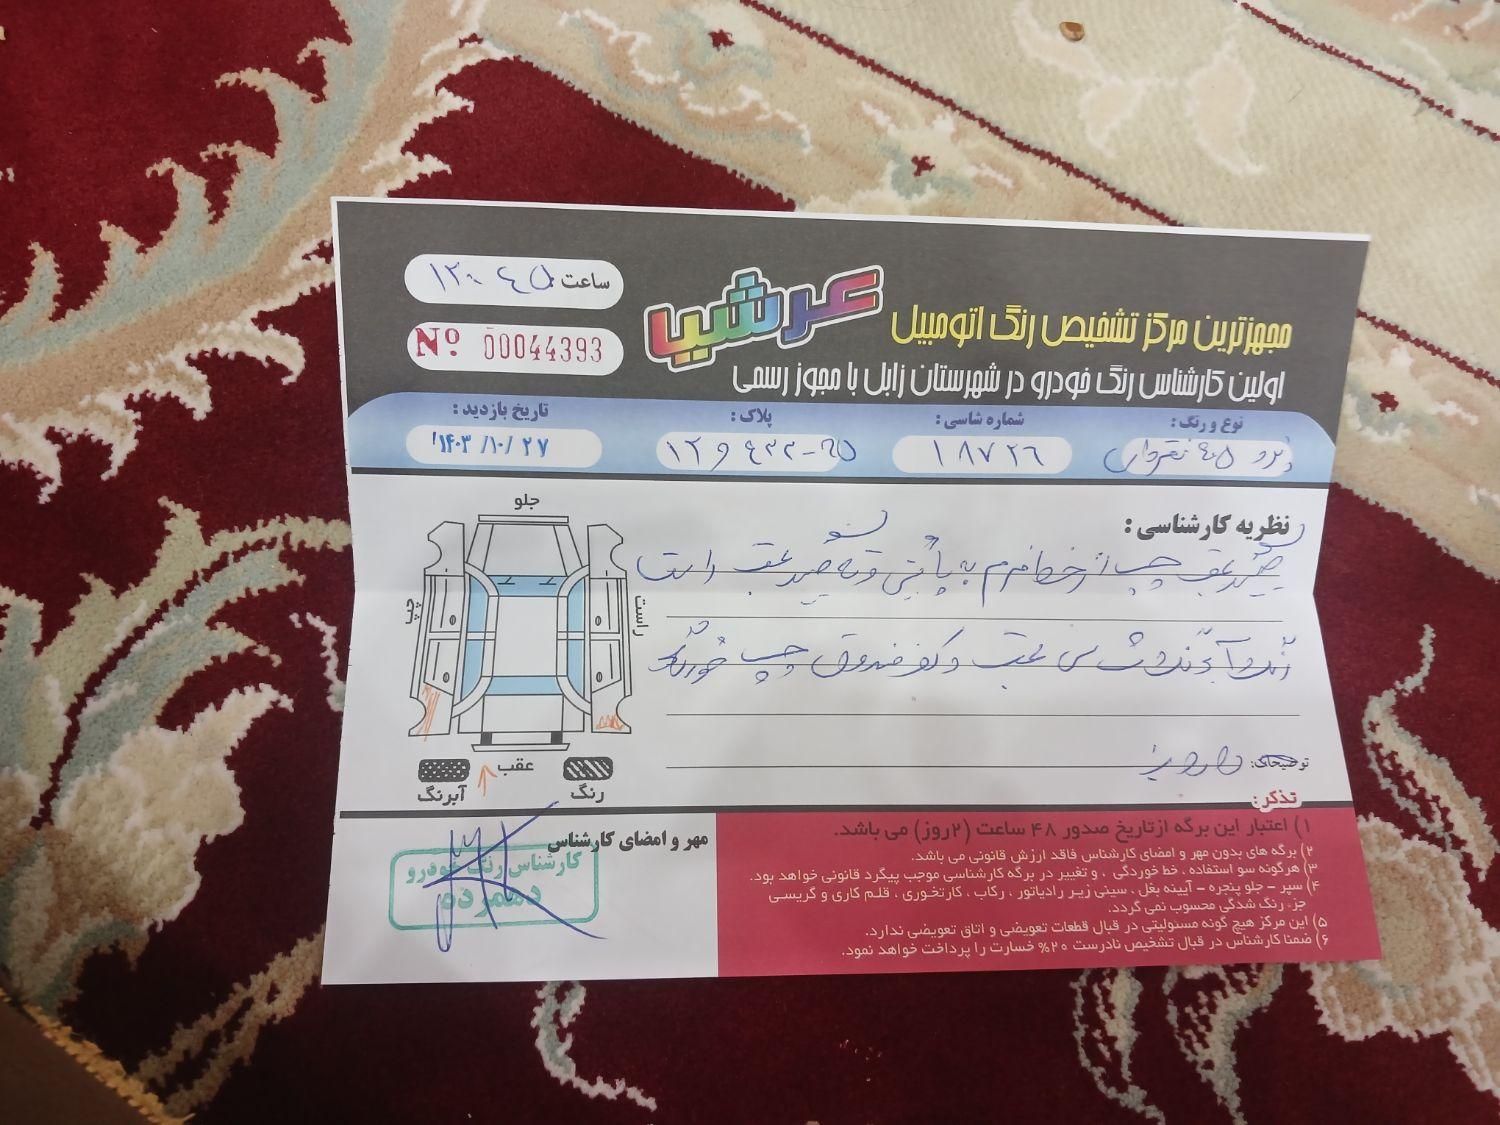 ساعت ۱۲:۴۵
Nº 00044393
عرشیا
مجهزترین مرکز تشخیص رنگ اتومبیل
اولین کارشناس رنگ خودرو در شهرستان زابل با مجوز رسمی
نوع و رنگ :
پژو ۴۰۵ نقره‌ای
شماره شاسی :
۱۸۷۲۶
پلاک :
تاریخ بازدید :
۱۴۰۳/۱۰/۲۷
نظریه کارشناسی :
گلگیر عقب چپ از خط فرم به پائین و ته گلگیر عقب راست
رنگ و آبرنگ و شاسی عقب و کف صندوق چپ خوردگی
توضیحات: دارد
جلو
چپ
راست
عقب
رنگ
آبرنگ
مهر و امضای کارشناس
کارشناس رنگ خودرو
دهمرده
تذکر:
۱) اعتبار این برگه از تاریخ صدور ۴۸ ساعت (۲روز) می باشد.
۲) برگه های بدون مهر و امضای کارشناس فاقد ارزش قانونی می باشد.
۳) هرگونه سو استفاده ، خط خوردگی ، و تغییر در برگه کارشناسی موجب پیگرد قانونی خواهد بود.
۴) سپر - جلو پنجره - آیینه بغل ، سینی زیر رادیاتور ، رکاب ، کارتخوری ، قلم کاری و گریسی
جز، رنگ شدگی محسوب نمی گردد.
۵) این مرکز هیچ گونه مسئولیتی در قبال قطعات تعویضی و اتاق تعویضی ندارد.
۶) ضمنا کارشناس در قبال تشخیص نادرست ۲۰% خسارت را پرداخت خواهد نمود.